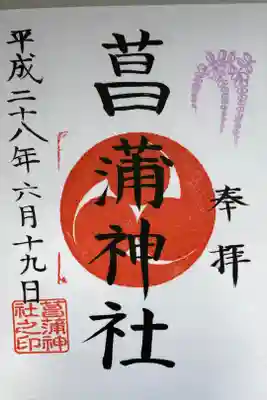 奉拝
菖蒲神社
平成二十八年六月十九日
菖蒲神
社之印